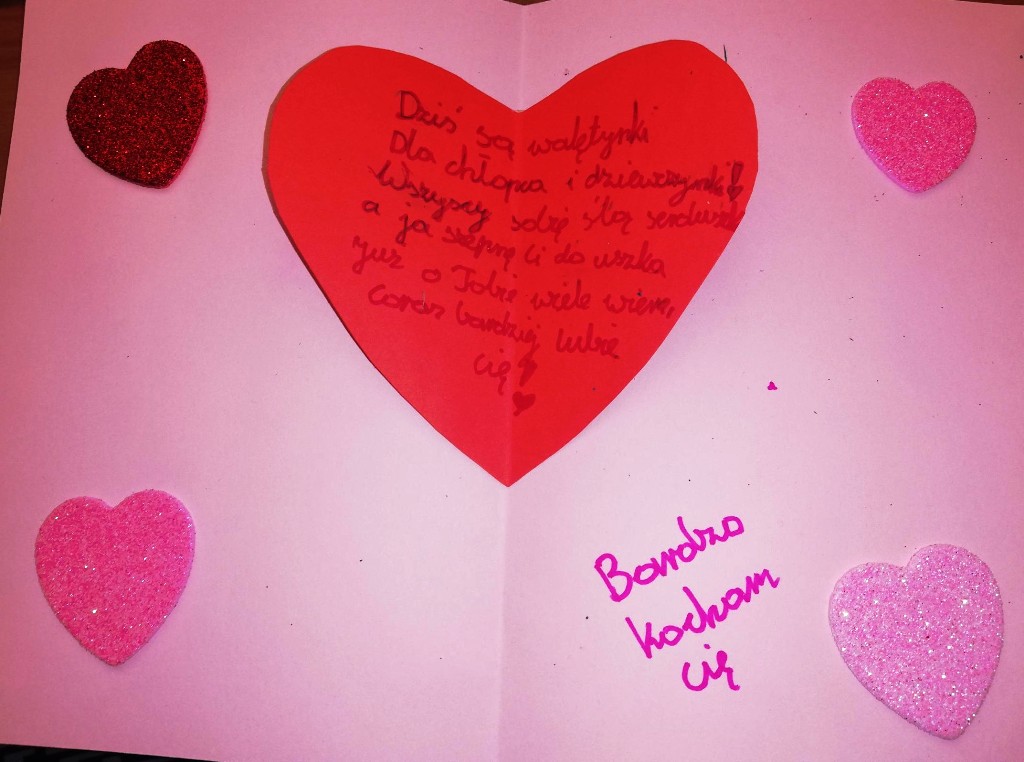 Dziś są walętynki
Dla chłopca i dziewczynki!
Wszyscy sobię ślą serduszka
a ja szepnę Ci do uszka
już o Tobie wiele wiem,
Coraz bardziej lubię
cię!
Bardzo
kocham
cię